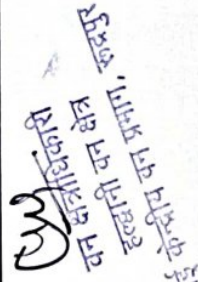 वन क्षेत्राधिकारी
हल्द्वानी वन क्षेत्र
ई केन्द्रीय वन प्रभाग, रुद्रपुर